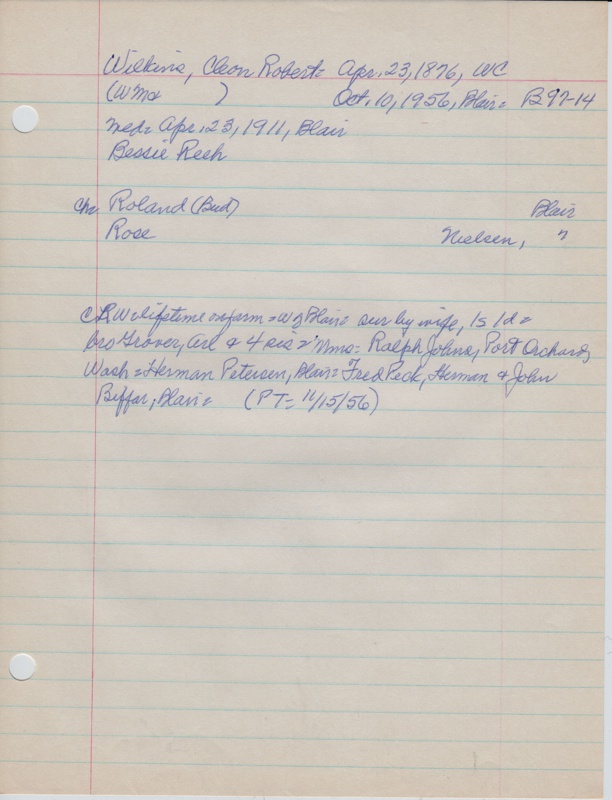 Wilkins, Cleon Robert= Apr. 23, 1876, WC
(Wm & ) Oct. 10, 1956, Blair= B97-14
med= Apr. 23, 1911, Blair
Bessie Reeh
Ch= Roland (Bud) Blair
Rose Nielsen, "
CRW lifetime on farm = W of Blair= sur by wife, 1s 1d=
bro Grover, & 4 sis = Mms= Ralph Johns, Port Orchard,
Wash = Herman Petersen, Blair= Fred Peck, Herman & John
Biffar, Blair= (PT= 11/15/56)